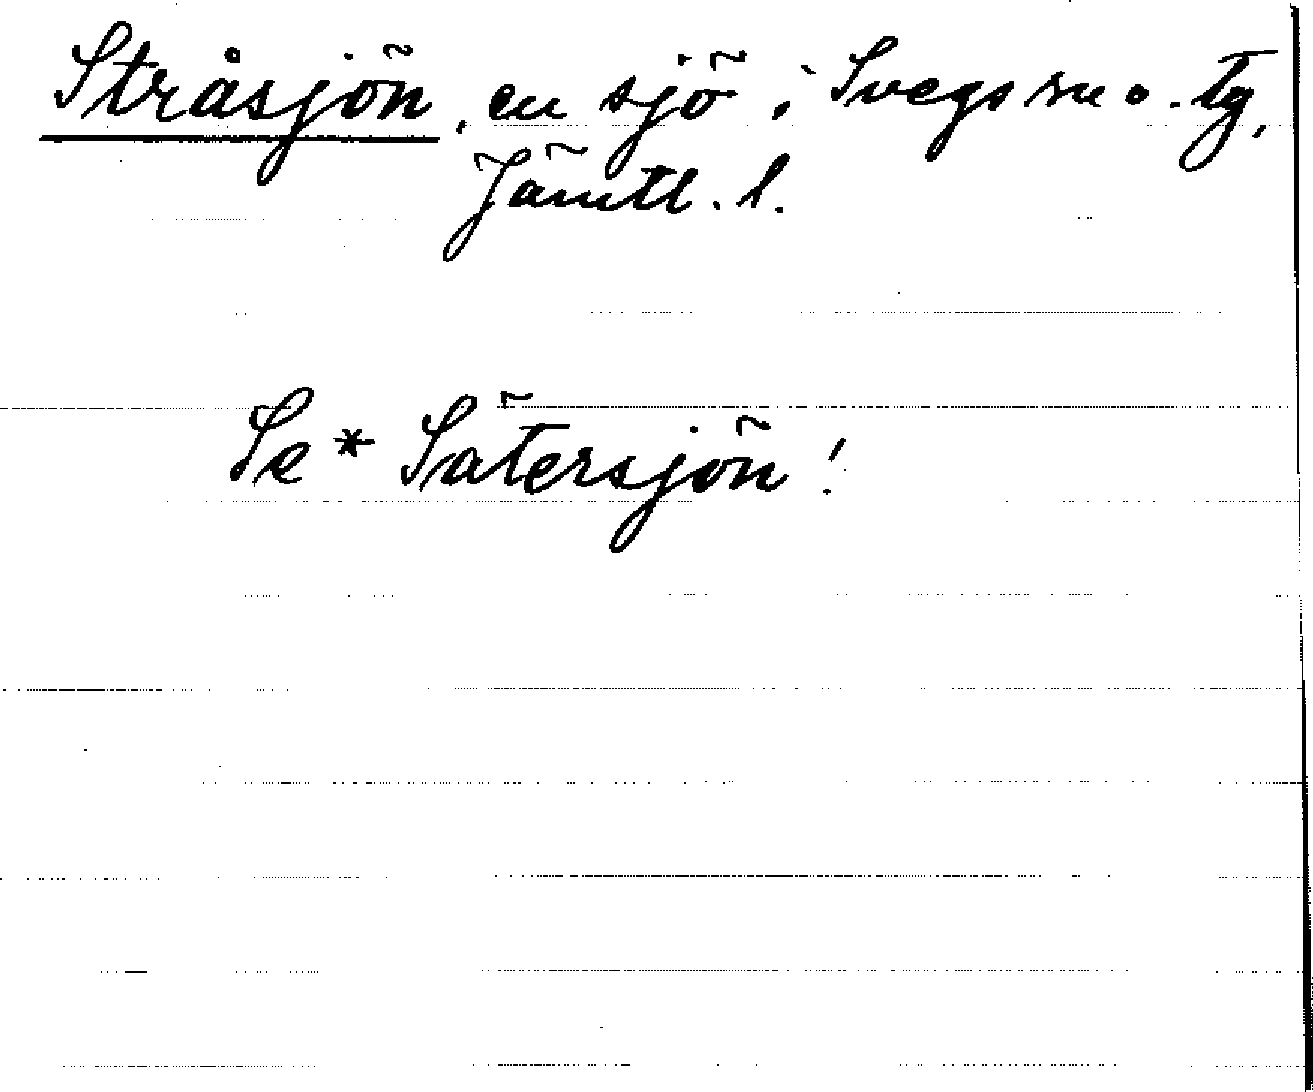 Stråsjön, en sjö i Svegs sn o. tg,
Jämtl. l.
Se * Sätersjön!